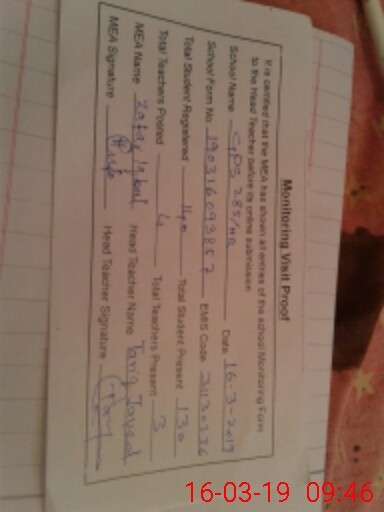 Monitoring Visit Proof
It is certified that the MEA has shown all entries of the school Monitoring Form
to the Head Teacher before its online submission
School Name GPS 285/HR Date 16-3-2019
School Form No 190316093852 EMIS Code
Total Student Registered 140 Total Student Present 130
Total Teachers Posted 4 Total Teachers Present 3
MEA Name Zafar Iqbal Head Teacher Name Tariq Javed
MEA Signature Head Teacher Signature
16-03-19 09:46